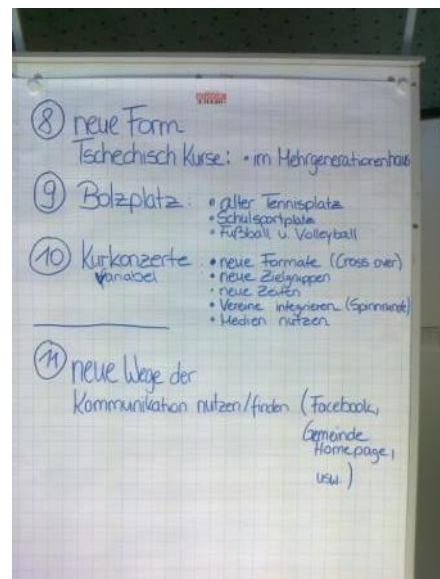 ⑧ neue Form
Tschechisch Kurse: • im Mehrgenerationenhaus
⑨ Bolzplatz: • alter Tennisplatz
• Schulsportplatz
• Fußball u. Volleyball
⑩ Kurkonzerte • neue Formate (Cross over)
Variabel • neue Zielgruppen
• neue Zeiten
• Vereine integrieren (Spinnrunde)
• Medien nutzen
⑪ neue Wege der
Kommunikation nutzen/finden (Facebook,
Gemeinde
Homepage,
usw.)